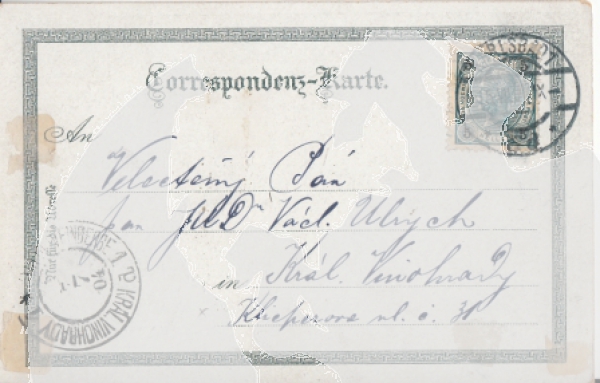 Correspondenz-Karte.
An
Velectěný Pán
pan JUDr Václ. Ulrych
in Král. Vinohrady
ul. č. 31
Nur für die Adresse
KRÁL. VINOHRADY